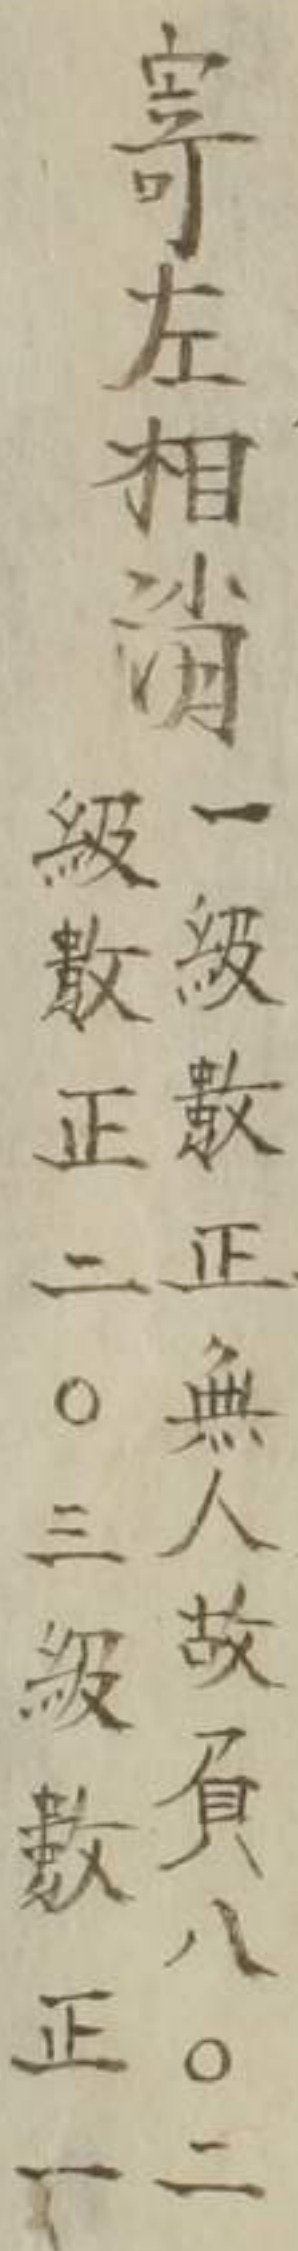 寄左相消
一級數正無人故負八〇二
級數正二〇三級數正一